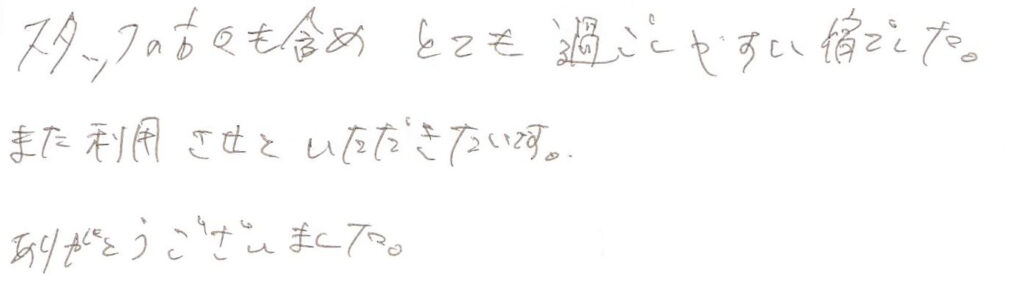 スタッフの方々も含め とても過ごしやすい宿でした。
また利用させていただきたいです。
ありがとうございました。